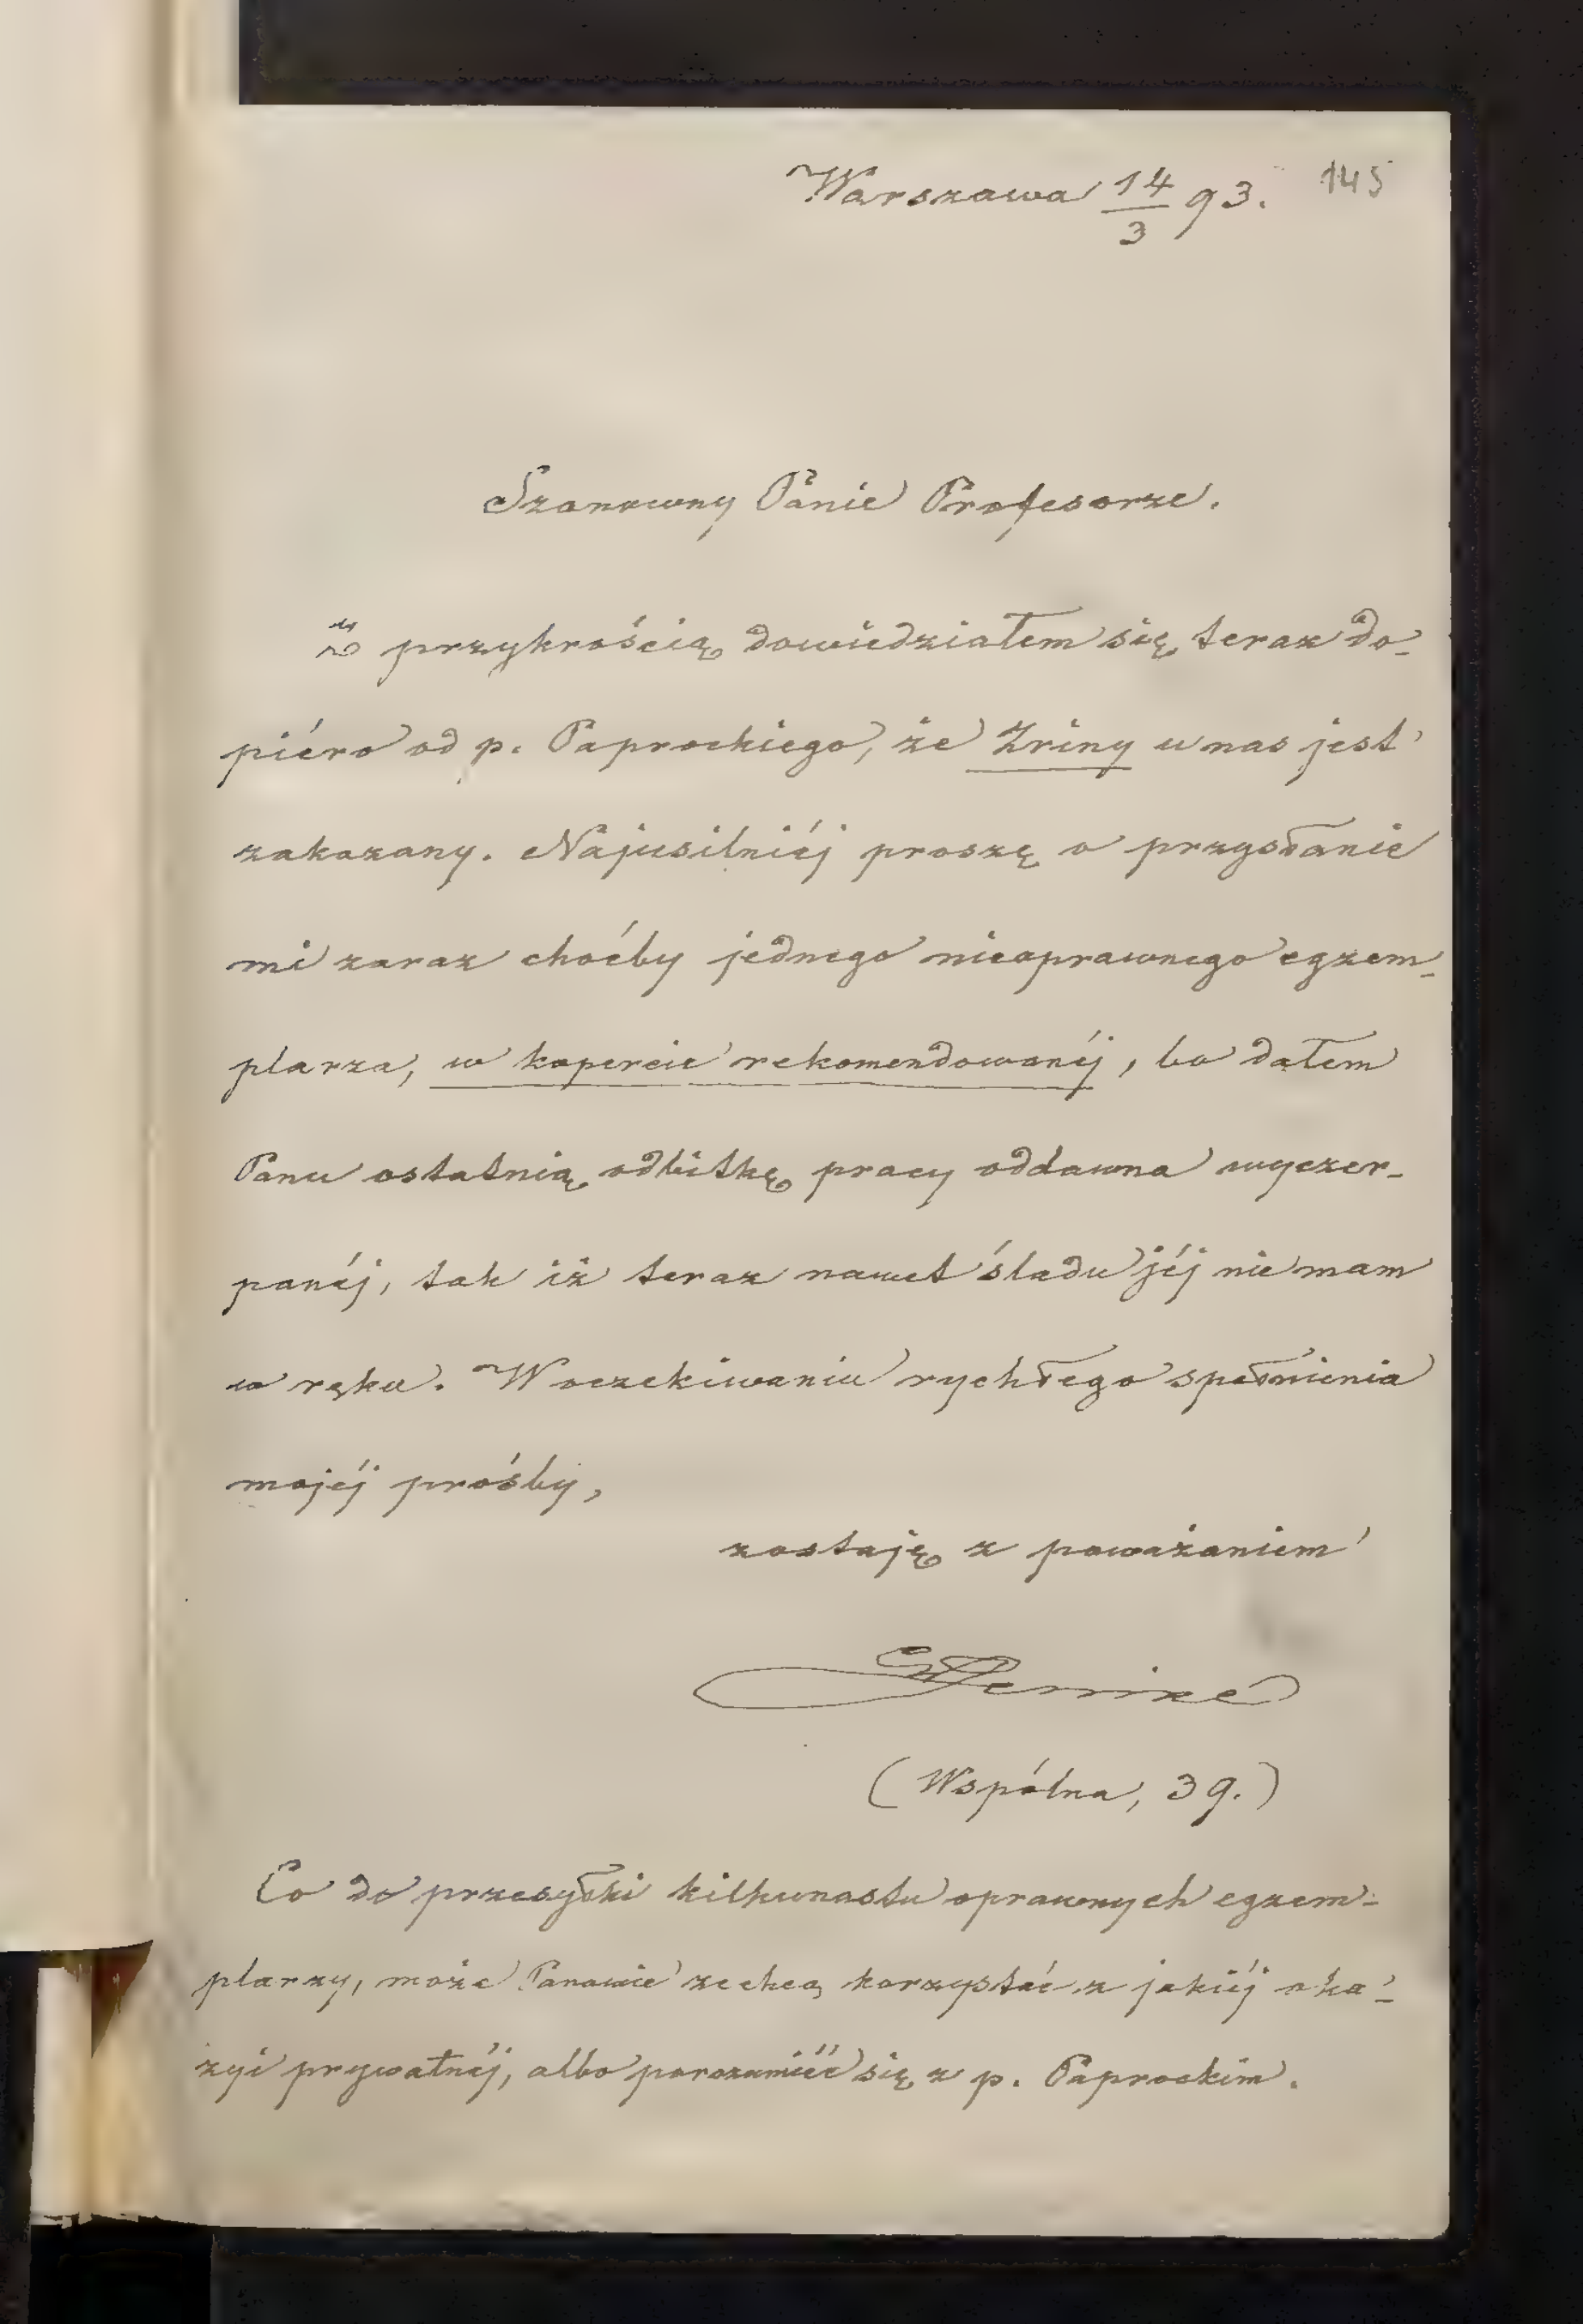 Warszawa 14/3 93. 145
Szanowny Panie Profesorze.
Z przykrością dowiedziałem się teraz do-
piéro od p. Paprockiego, że Zriny u nas jest
zakazany. Najusilniéj proszę o przysłanie
mi zaraz choćby jednego nieoprawnego egzem-
plarza, w kopercie rekomendowanéj, bo dałem
Panu ostatnią odbitkę pracy oddawna wyczer-
panéj, tak iż teraz nawet śladu jéj nie mam
w ręku. W oczekiwaniu rychłego spełnienia
mojéj prośby,
zostaję z poważaniem
Jenike
(Wspólna, 39.)
Co do przesyłki kilkunastu oprawnych egzem-
plarzy, może Panowie zechcą korzystać z jakiéj oka-
zyi prywatnéj, albo porozumiéć się z p. Paprockim.